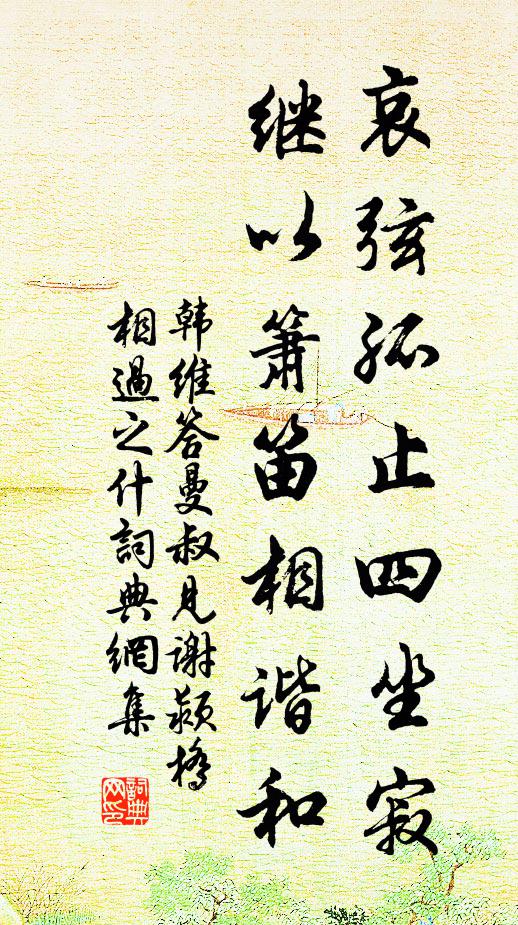 哀弦孤止四坐寂
继以箫笛相谐和
韩维答曼叔见谢颍桥
相過之什詞典網集
詞典网印